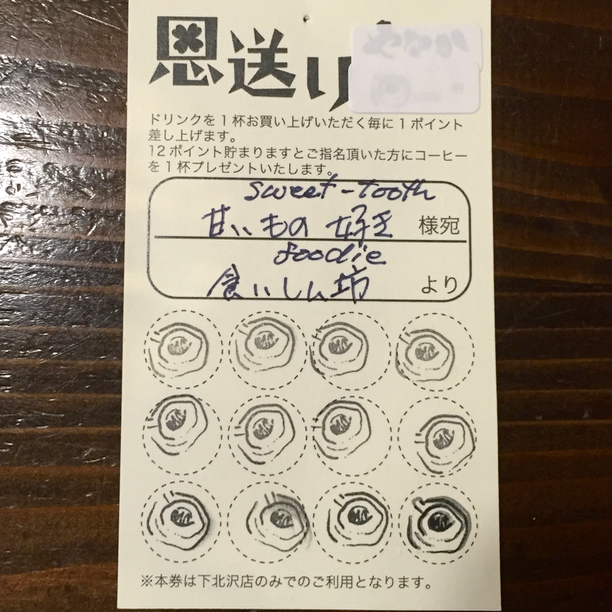 恩送り
ドリンクを1杯お買い上げいただく毎に1ポイント
差し上げます。
12ポイント貯まりますとご指名頂いた方にコーヒー
を1杯プレゼントいたします。
sweet-tooth
甘いもの好き 様宛
foodie
食いしん坊 より
※本券は下北沢店のみでのご利用となります。